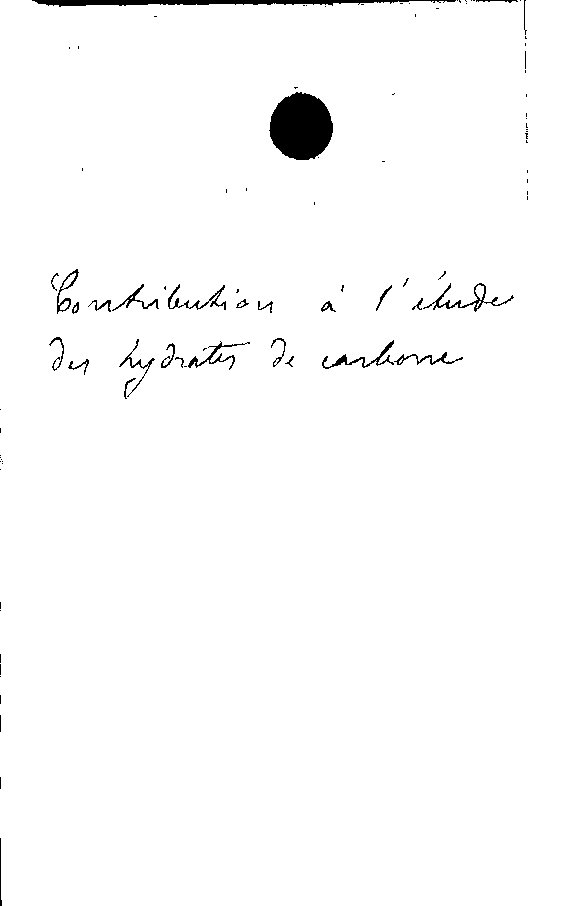 Contribution à l'étude
des hydrates de carbone